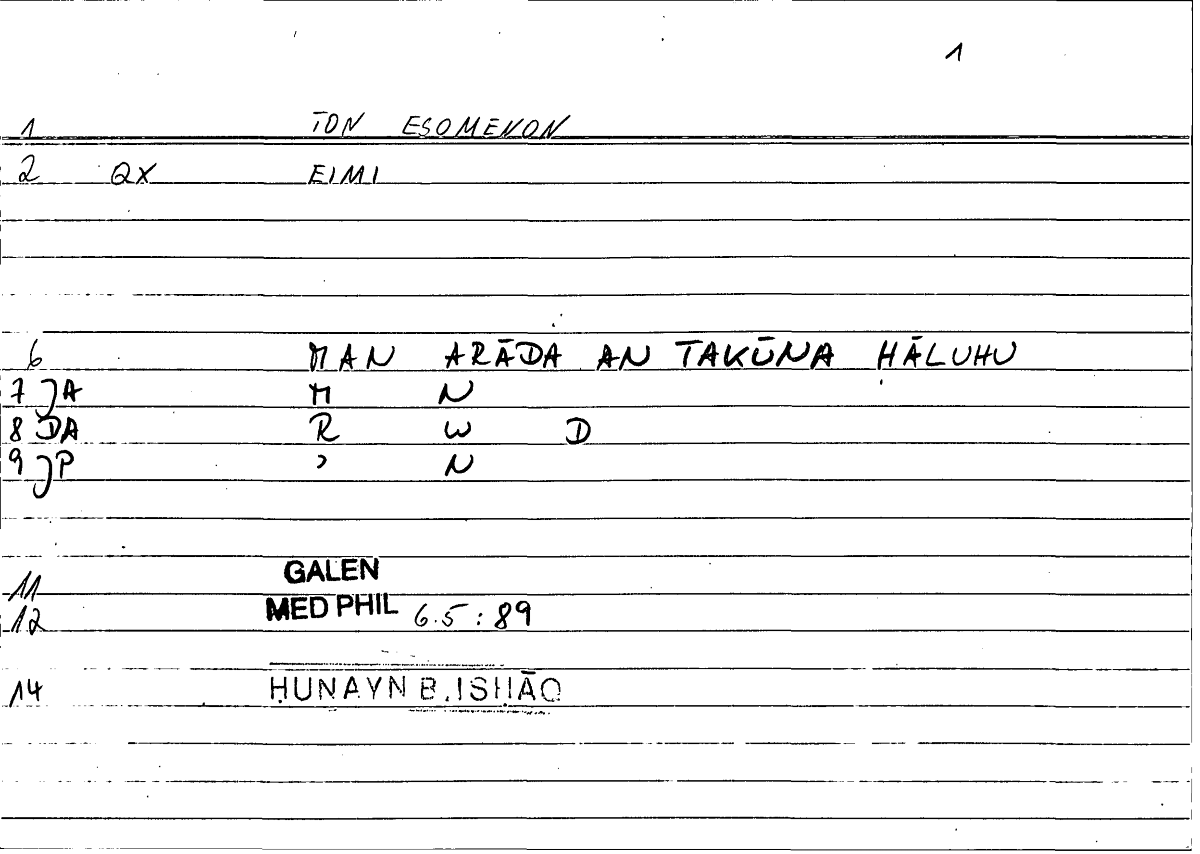 1
1 TON ESOMENON
2 QX EIMI
6 MAN ARĀDA AN TAKŪNA HĀLUHU
7 JA M N
8 DA R W D
9 JP ʾ N
11 GALEN
12 MED PHIL 6.5 : 89
14 ḤUNAYN B. ISḤĀQ